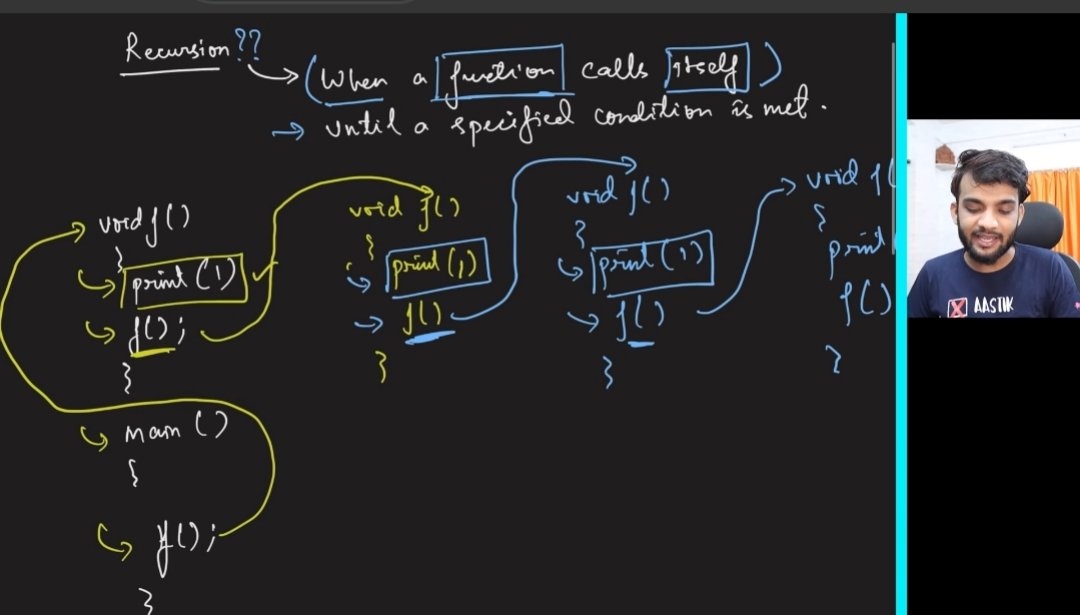 Recursion ??
(When a function calls itself)
until a specified condition is met.
void f()
{
print(1)
f();
}
main()
{
f();
}
void f()
{
print(1)
f()
}
void f()
{
print(1)
f()
}
void f(
{
print
f()
}
AASTIK